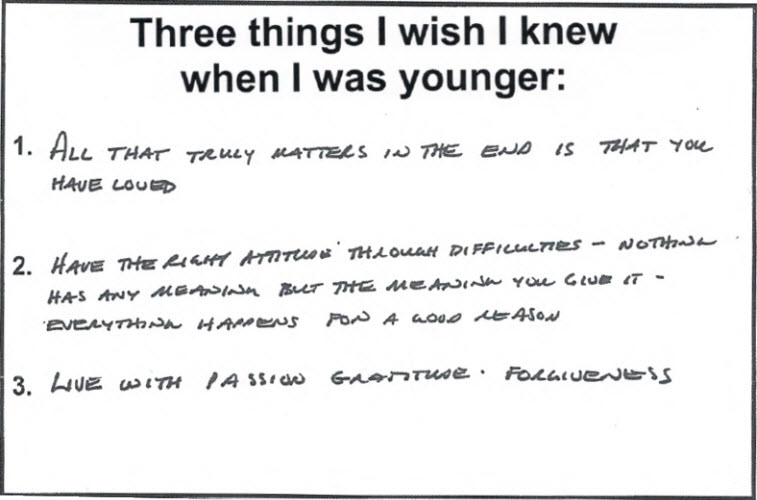 Three things I wish I knew
when I was younger:
1. ALL THAT TRULY MATTERS IN THE END IS THAT YOU
HAVE LOVED
2. HAVE THE RIGHT ATTITUDE THROUGH DIFFICULTIES - NOTHING
HAS ANY MEANING BUT THE MEANING YOU GIVE IT -
EVERYTHING HAPPENS FOR A GOOD REASON
3. LIVE WITH PASSION GRATITUDE · FORGIVENESS